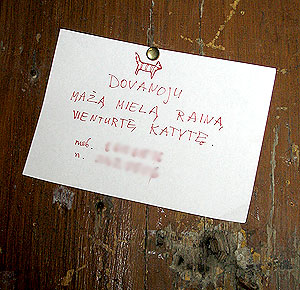 DOVANOJU
MAŽĄ MIELĄ RAINĄ
VIENTURTĘ KATYTĘ.
mob.
n.